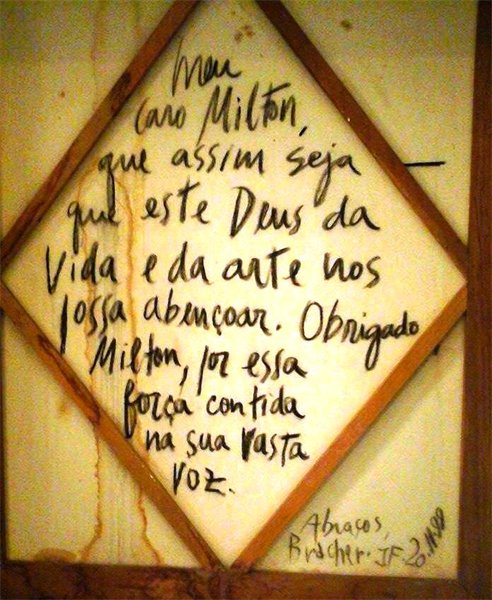 Meu
caro Milton,
que assim seja
que este Deus da
Vida e da arte nos
possa abençoar. Obrigado
Milton, por essa
força contida
na sua vasta
voz.
Abraços,
Bracher. JF.